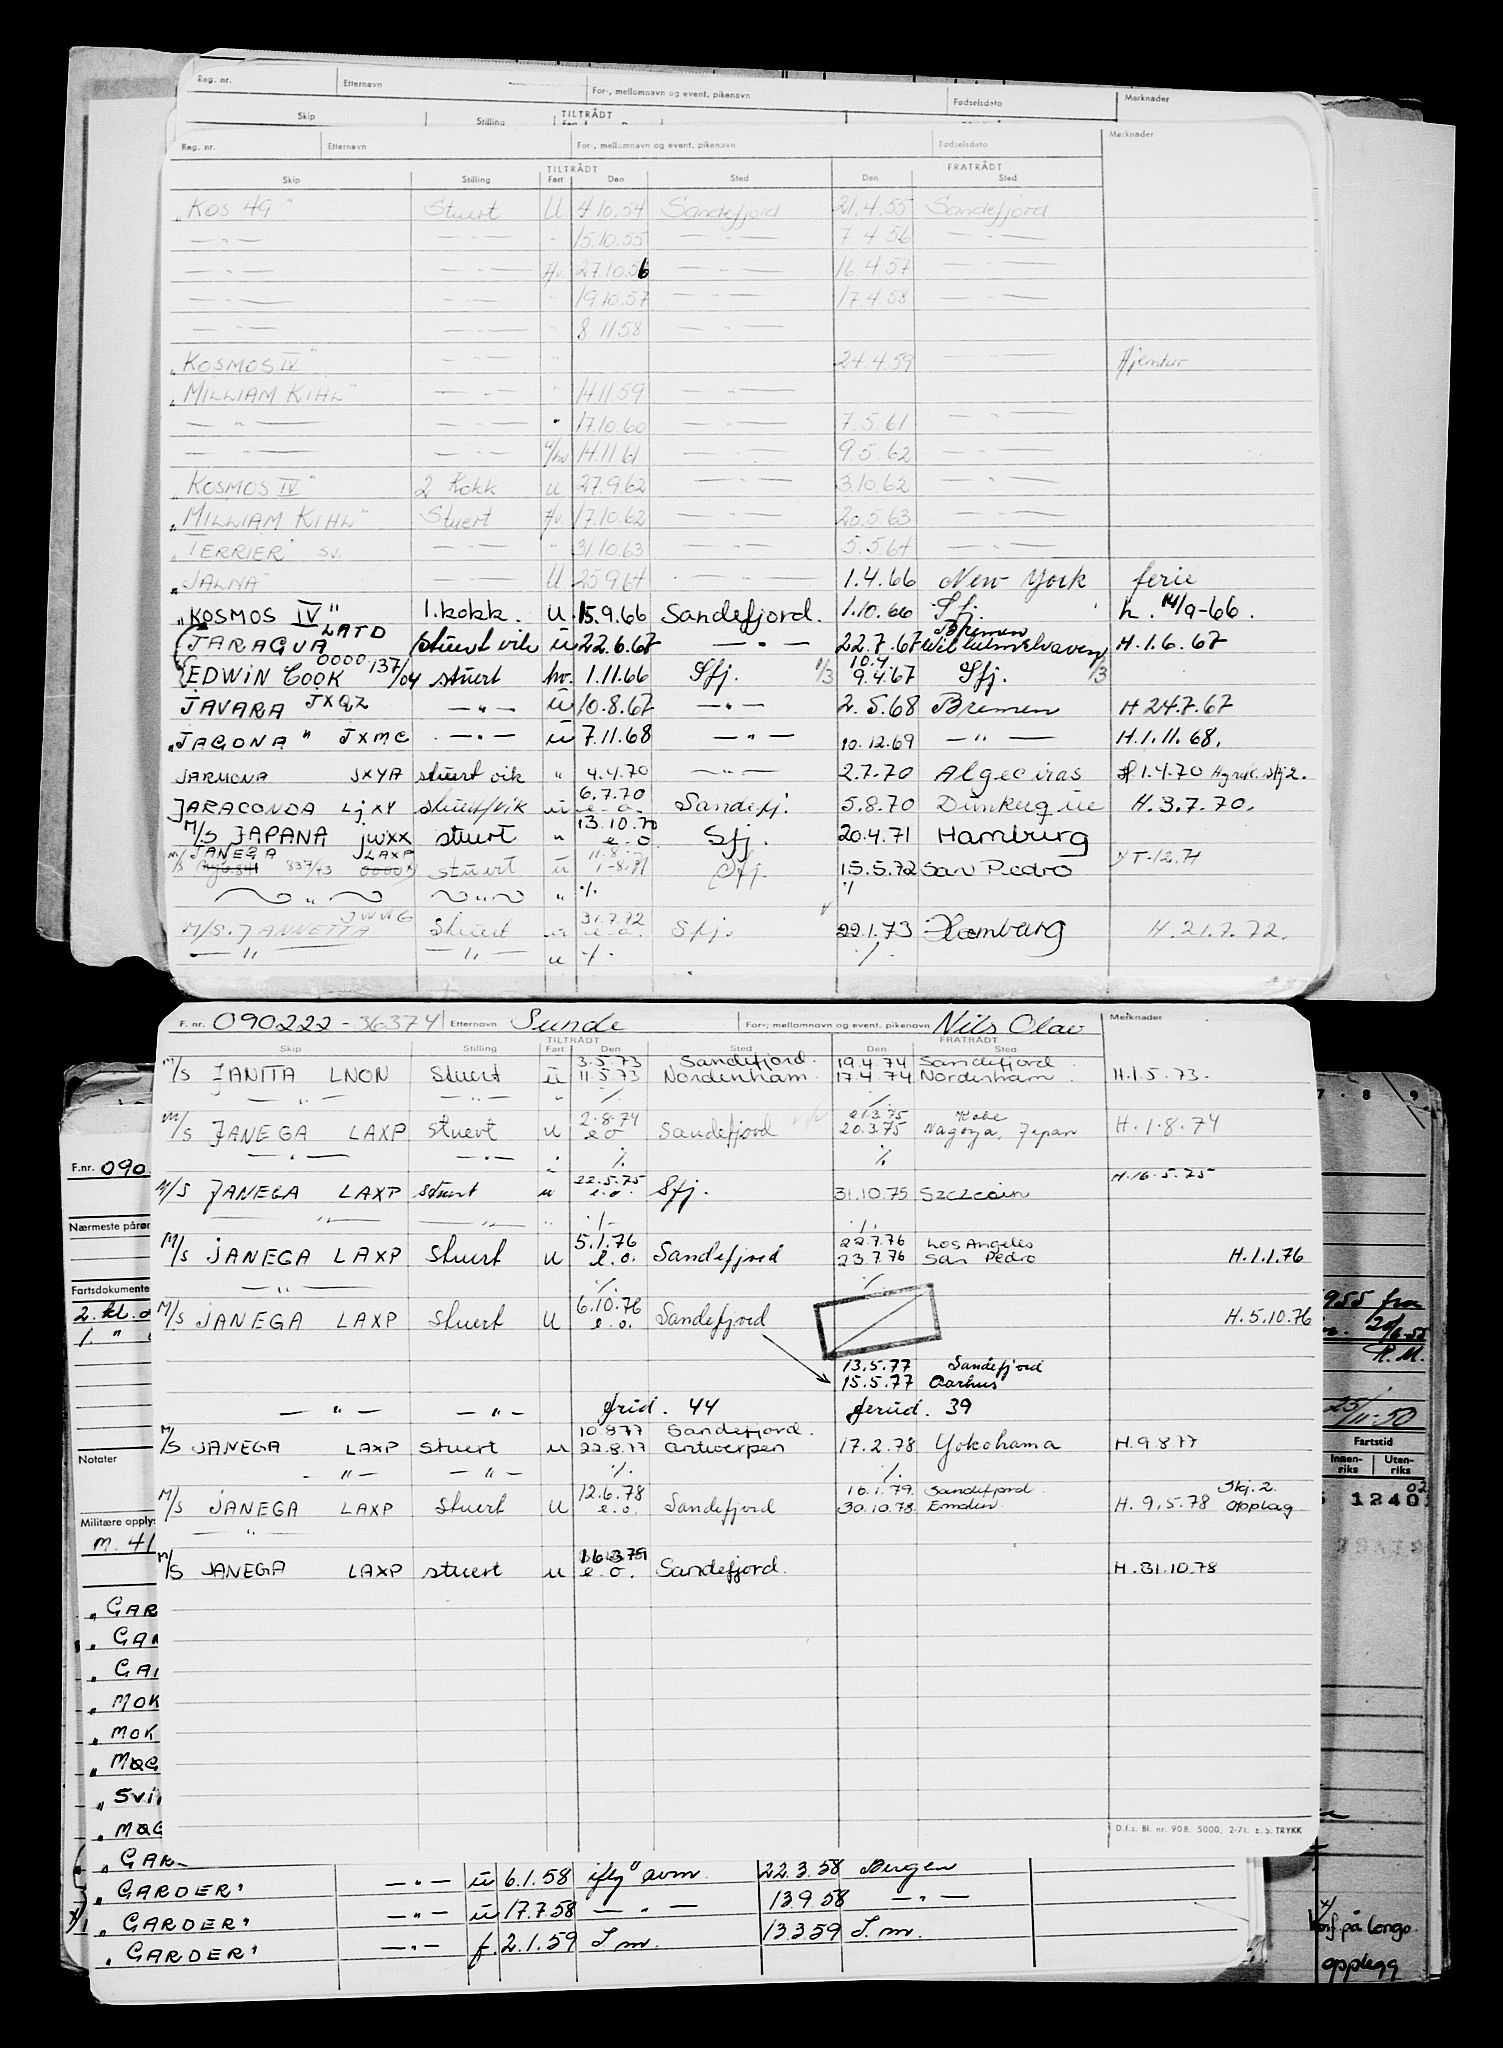 Reg. nr. Etternavn For-, mellomnavn og event. pikenavn Fødselsdato Merknader
Skip Stilling TILTRÅDT
Reg. nr. Etternavn For-, mellomnavn og event. pikenavn Fødselsdato Merknader
TILTRÅDT FRATRÅDT
Skip Stilling Fart Den Sted Den Sted
"KOS 49" Stuert U 4.10.54 Sandefjord 21.4.55 Sandefjord
— " — — " — " 15.10.55 — " — 7.4.56 — " —
— " — — " — 27.10.56 — " — 16.4.57 — " —
— " — — " — " 19.10.57 — " — 17.4.58 — " —
— " — — " — " 8.11.58 — " —
"KOSMOS IV" — " — " 24.4.59 — " —
"WILLIAM KIHL" — " — " 14.11.59 — " —
— " — " 17.10.60 — " — 7.5.61 — " —
— " — — " — 14.11.61 — " — 9.5.62 — " —
"KOSMOS IV" 2 Kokk u 27.9.62 — " — 3.10.62 — " —
"WILLIAM KIHL" Stuert 17.10.62 — " — 20.5.63 — " —
"TERRIER" sv. — " — " 31.10.63 — " — 5.5.64 — " —
"JALNA" — " — U 25.9.64 — " — 1.4.66 New York ferie
"KOSMOS IV" 1. kokk. u. 15.9.66 Sandefjord. 1.10.66 Sfj. h. 14/9-66.
LATD Bremen
JARAGUA stuert vik ü 22.6.67 — " — 22.7.67 Wilhelmshaven H.1.6.67
0000 137/04 10.4.
EDWIN COOK stuert hv. 1.11.66 Sfj. 1/3 9.4.67 Sfj. 1/3
JAVARA JXQZ — " — ü 10.8.67 — " — 2.5.68 Bremen H 24.7.67
"JAGONA" JXMC — " — ü 7.11.68 — " — 10.12.69 — " — H.1.11.68.
JARMONA JXYA stuert vik " 4.4.70 — " — 2.7.70 Algeciras 1.4.70
6.7.70
JARACONDA LJXY stuert/vik ü e.o. Sandefj. 5.8.70 Dunkerque H.3.7.70.
13.10.70
M/S JAPANA jwxx stuert " e.o. Sfj. 20.4.71 Hamburg
M/S JANEGA LAXP 11-8-
837/43 stuert ü 1-8-71 Sfj. 15.5.72 San Pedro T-12.71
" " " % %
JWWG 31.7.72
M/S. JANNETTA Stuert e.o. Sfj. 22.1.73 Hamburg H.21.7.72.
— " — — " — u % %
F. nr. 090222-36374 Etternavn Sunde For-, mellomnavn og event. pikenavn Nils Olav Merknader
TILTRÅDT FRATRÅDT
Skip Stilling Fart Den Sted Den Sted
3.5.73 Sandefjord. 19.4.74 Sandefjord
M/S JANITA LNON stuert ü 11.5.73 Nordenham. 17.4.74 Nordenham. H.1.5.73.
— " — — " — " % %
2.8.74 21.3.75 Kobe
M/S JANEGA LAXP stuert u e.o Sandefjord 20.3.75 Nagoya, Japan H.1.8.74
— " — — " — " % %
22.5.75 H.16.5.75
M/S JANEGA LAXP stuert u e.o. Sfj. 31.10.75 Szczecin
— " — — " — " % %
5.1.76 22.7.76 Los Angeles
M/S JANEGA LAXP stuert u e.o. Sandefjord 23.7.76 San Pedro H.1.1.76
— " — % %
6.10.76
M/S JANEGA LAXP stuert u e.o. Sandefjord H.5.10.76
13.5.77 Sandefjord
15.5.77 Aarhus
— " — — " — frid. 44 feried. 39
10.8.77 Sandefjord.
M/S JANEGA LAXP stuert u 22.8.77 Antwerpen 17.2.78 Yokohama H.9.8.77
— " — — " — % %
12.6.78 16.1.79. Sandefjord Skj. 2.
M/S JANEGA LAXP stuert u e.o. Sandefjord 30.10.78. Emden. H.9.5.78 opplag
— " —
16.3.79
M/S JANEGA LAXP stuert u e.o. Sandefjord. H.31.10.78
D.f.s. Bl. nr. 908. 5000, 2-71. E. S. TRYKK
7 - 8 9
F.nr. 090
Nærmeste pårør
Fartsdokumente
2. kl.
1. "
955 fra
R.M.
25/11-50
Fartstid
Innen-riks Uten-riks
Notater
1240
Militære opply
m. 41
"GAR
"GAR
"GAR
"MOK
"MOK
"MOC
"SVI
"MOC
"GAR
"GARDER" — " — ü 6.1.58 iflg avm. 22.3.58 Bergen
"GARDER" — " — ü 17.7.58 — " — 13.9.58 — " —
"GARDER" — " — f. 2.1.59 S.m. 13.3.59 S.m.
på Congo.
opplegg